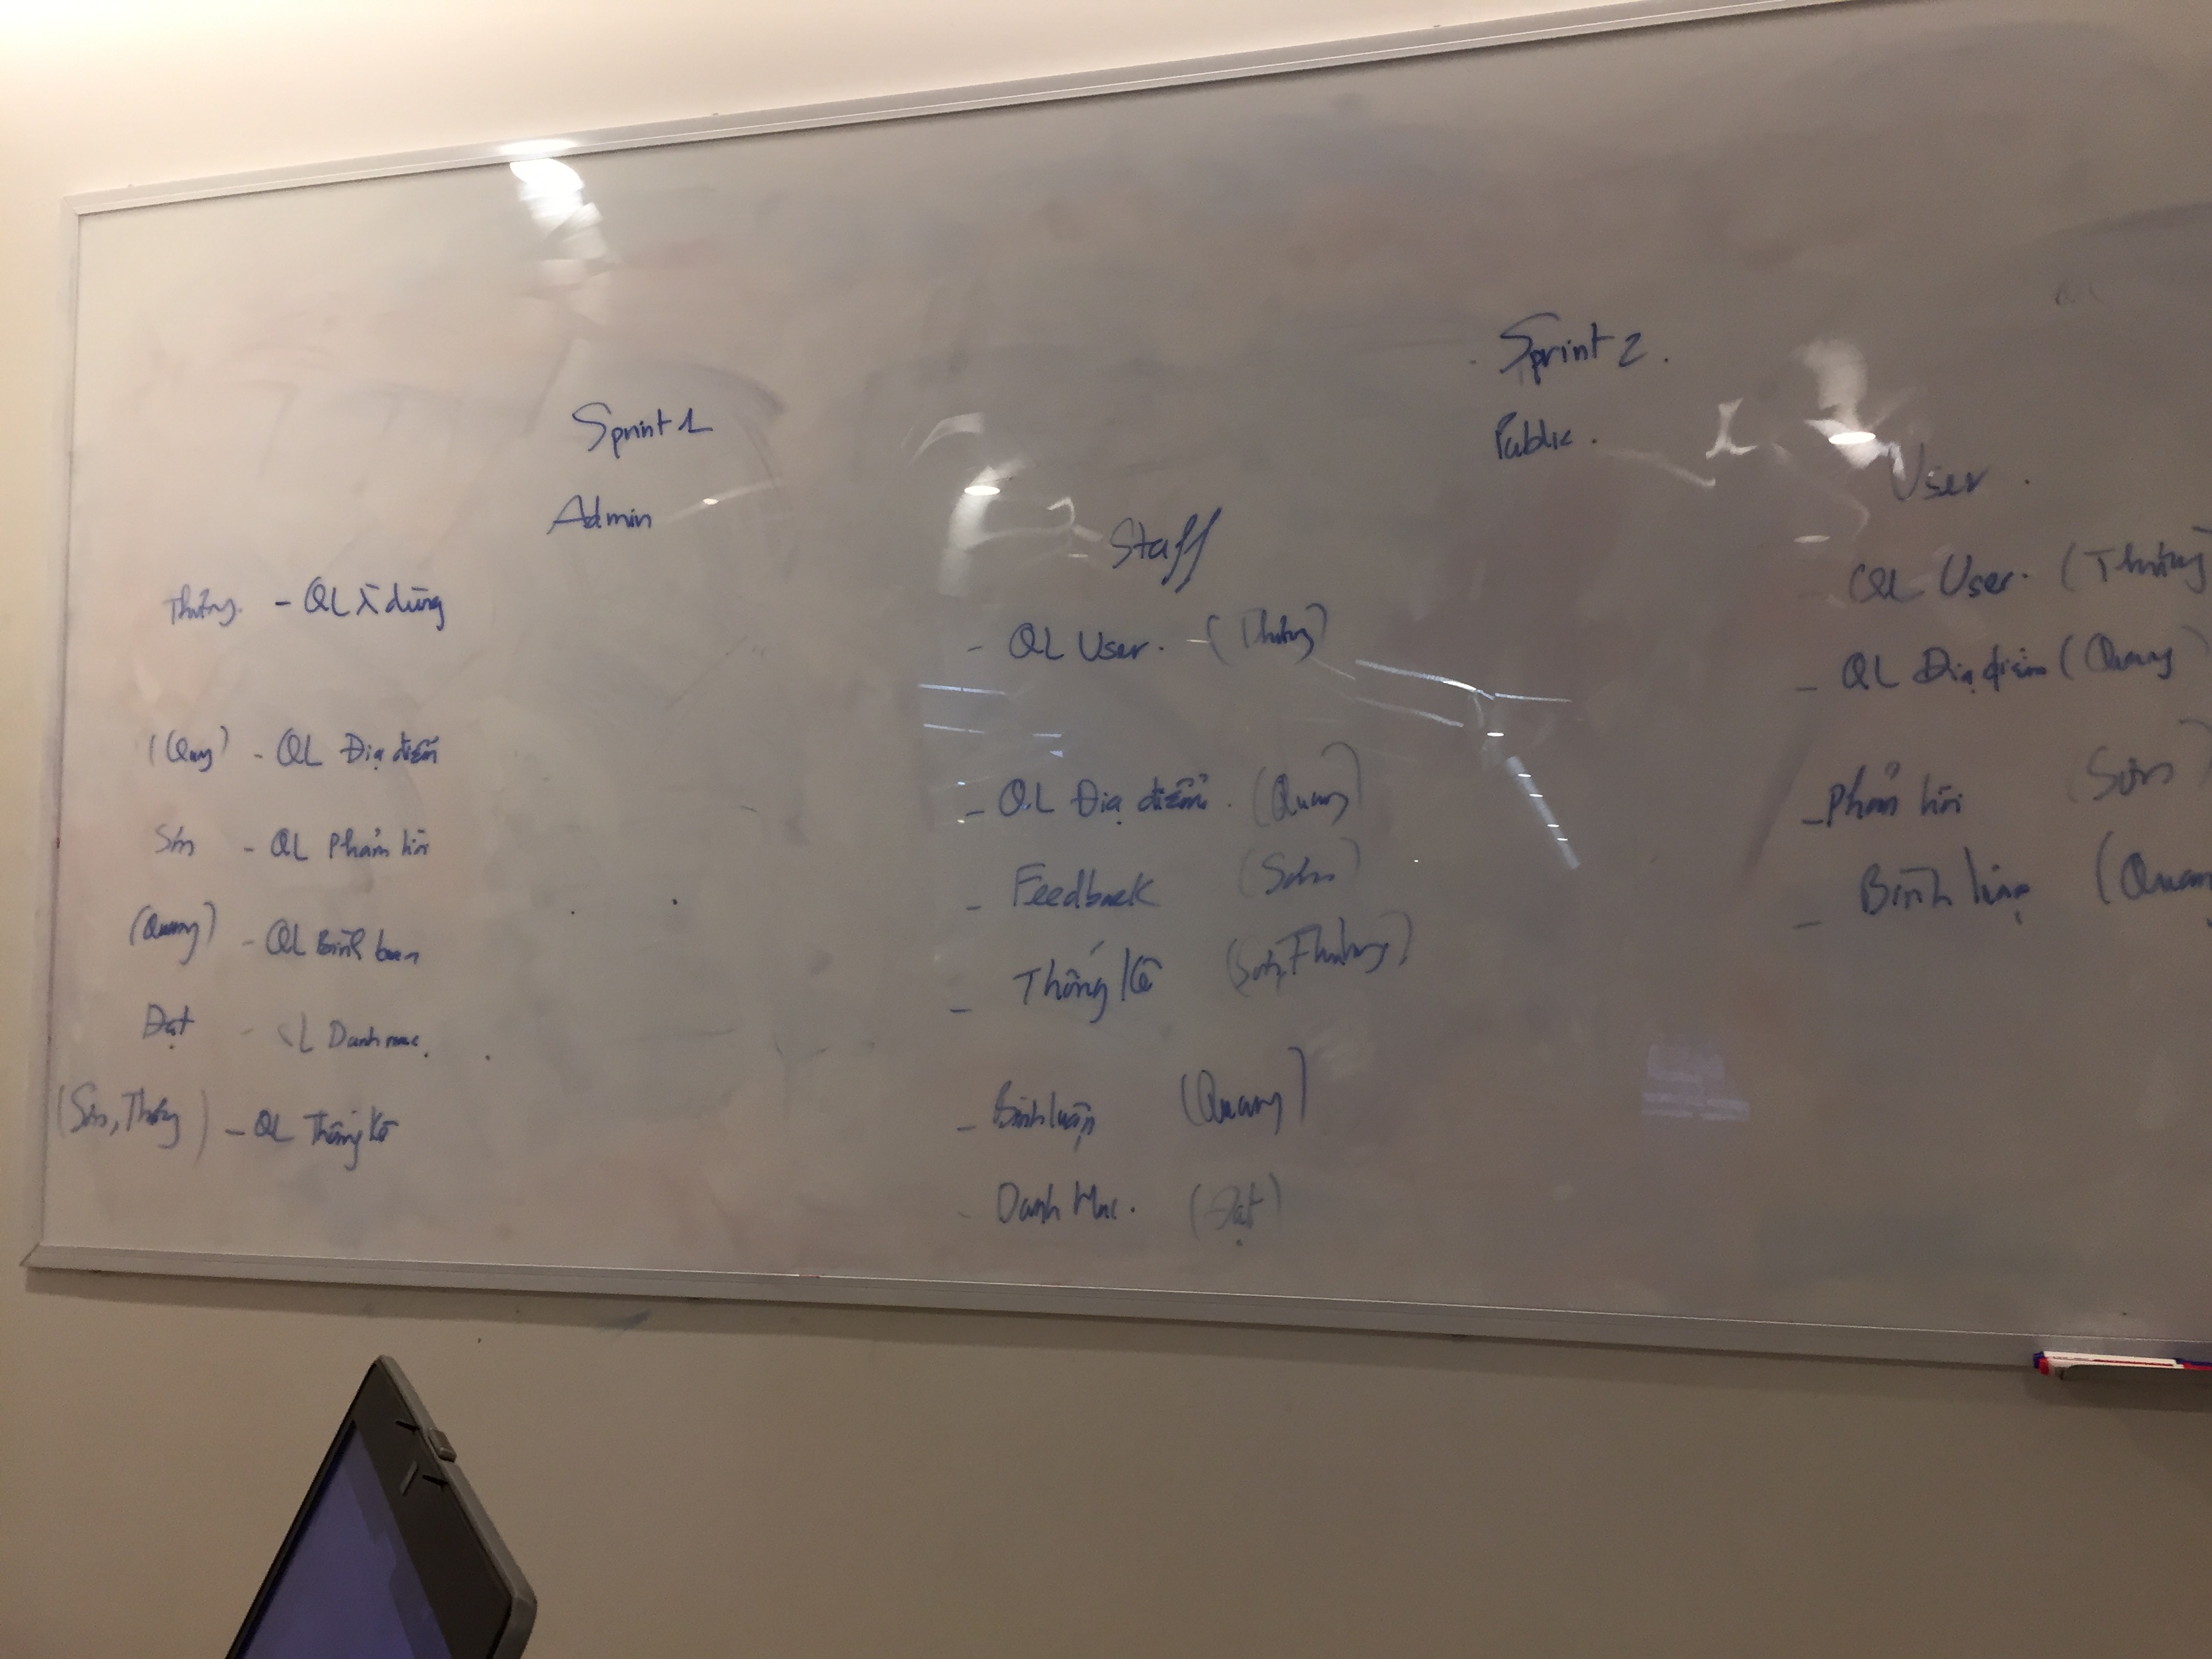 Sprint 1
Admin
Thưởng. - QL N dùng
(Quang) - QL Địa điểm
Sơn - QL Phản hồi
(Quang) - QL Bình luận
Đạt - QL Danh mục.
(Sơn, Thưởng) - QL Thống kê
Staff
- QL User. - (Thưởng)
- QL Địa điểm. (Quang)
- Feedback (Sơn)
- Thống kê (Sơn, Thưởng)
- Bình luận (Quang)
- Danh Mục. (Đạt)
Sprint 2.
Public.
User.
- QL User. (Thưởng
- QL Địa điểm (Quang)
- Phản hồi (Sơn)
- Bình luận (Quan